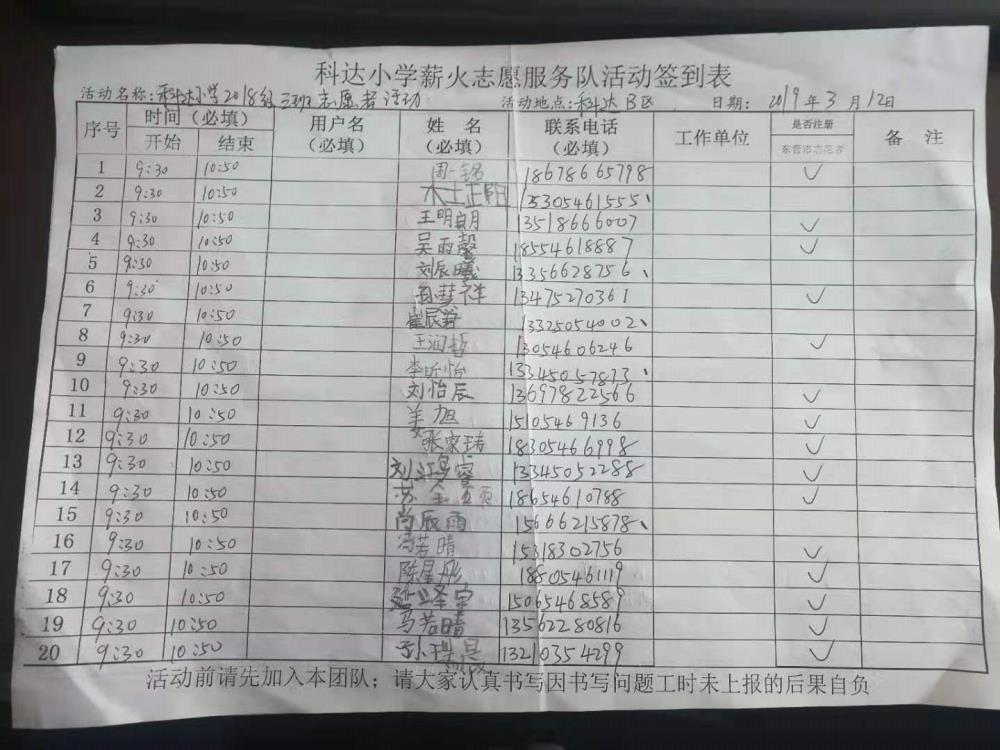 科达小学薪火志愿服务队活动签到表
活动名称:科达小学2018级三班志愿者活动 活动地点:科达B区 日期: 2019年3月12日
序号 时间(必填) 用户名(必填) 姓 名(必填) 联系电话(必填) 工作单位 是否注册 备 注
开始 结束 东营市志愿者
1 9:30 10:50 周一铭 18678665798 ✓
2 9:30 10:50 木土正阳 15305461555、
3 9:30 10:50 王明朗 13518666007 ✓
4 9:30 10:50 吴雨馨 18554618887 ✓
5 9:30 10:50 刘辰曦 13356628756、
6 9:30 10:50 慧祥 13475270361 ✓
7 9:30 10:50 崔辰 13325054002、
8 9:30 10:50 王润哲 13054606246 ✓
9 9:30 10:50 李昕怡 13345057873、
10 9:30 10:50 刘怡辰 13697822566 ✓
11 9:30 10:50 姜旭 15105469136 ✓
12 9:30 10:50 张家 18305466998 ✓
13 9:30 10:50 刘鸿睿 13345052288 ✓
14 9:30 10:50 苏 18654610788 ✓
15 9:30 10:50 尚辰雨 15666215878、
16 9:30 10:50 冯若晴 15318302756 ✓
17 9:30 10:50 陈星彤 18805461119 ✓
18 9:30 10:50 泽宇 15065468589 ✓
19 9:30 10:50 马若晴 13562280816 ✓
20 9:30 10:50 孙 13210354299 ✓
活动前请先加入本团队;请大家认真书写因书写问题工时未上报的后果自负